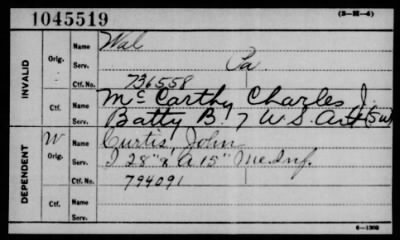 1045519
(3-H-4)
INVALID
Orig.
Name
Wal
Serv.
Pa
Ctf. No.
736558
Ctf.
Name
McCarthy Charles J.
Serv.
Batty B. 7 U.S. Art (SW)
DEPENDENT
W
Orig.
Name
Curtis, John
Serv.
I 28" & A 15" Me Inf.
Ctf. No.
794091
Ctf.
Name
Serv.
6-1302